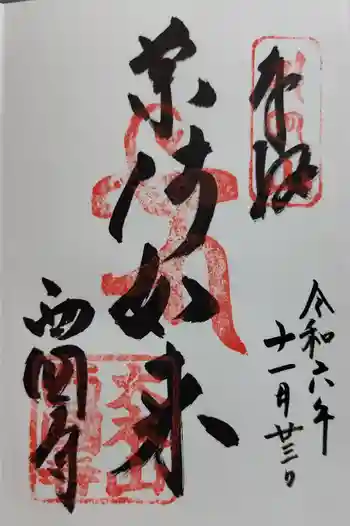 奉拝
令和六年
十一月廿三日
薬師如来
西国寺